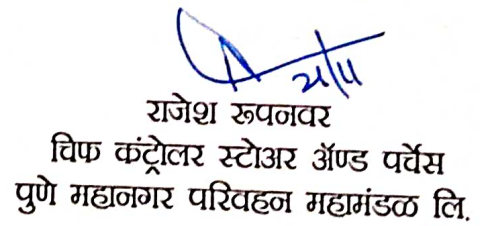 राजेश रूपनवर
चिफ कंट्रोलर स्टोअर ॲण्ड पर्चेस
पुणे महानगर परिवहन महामंडळ लि.